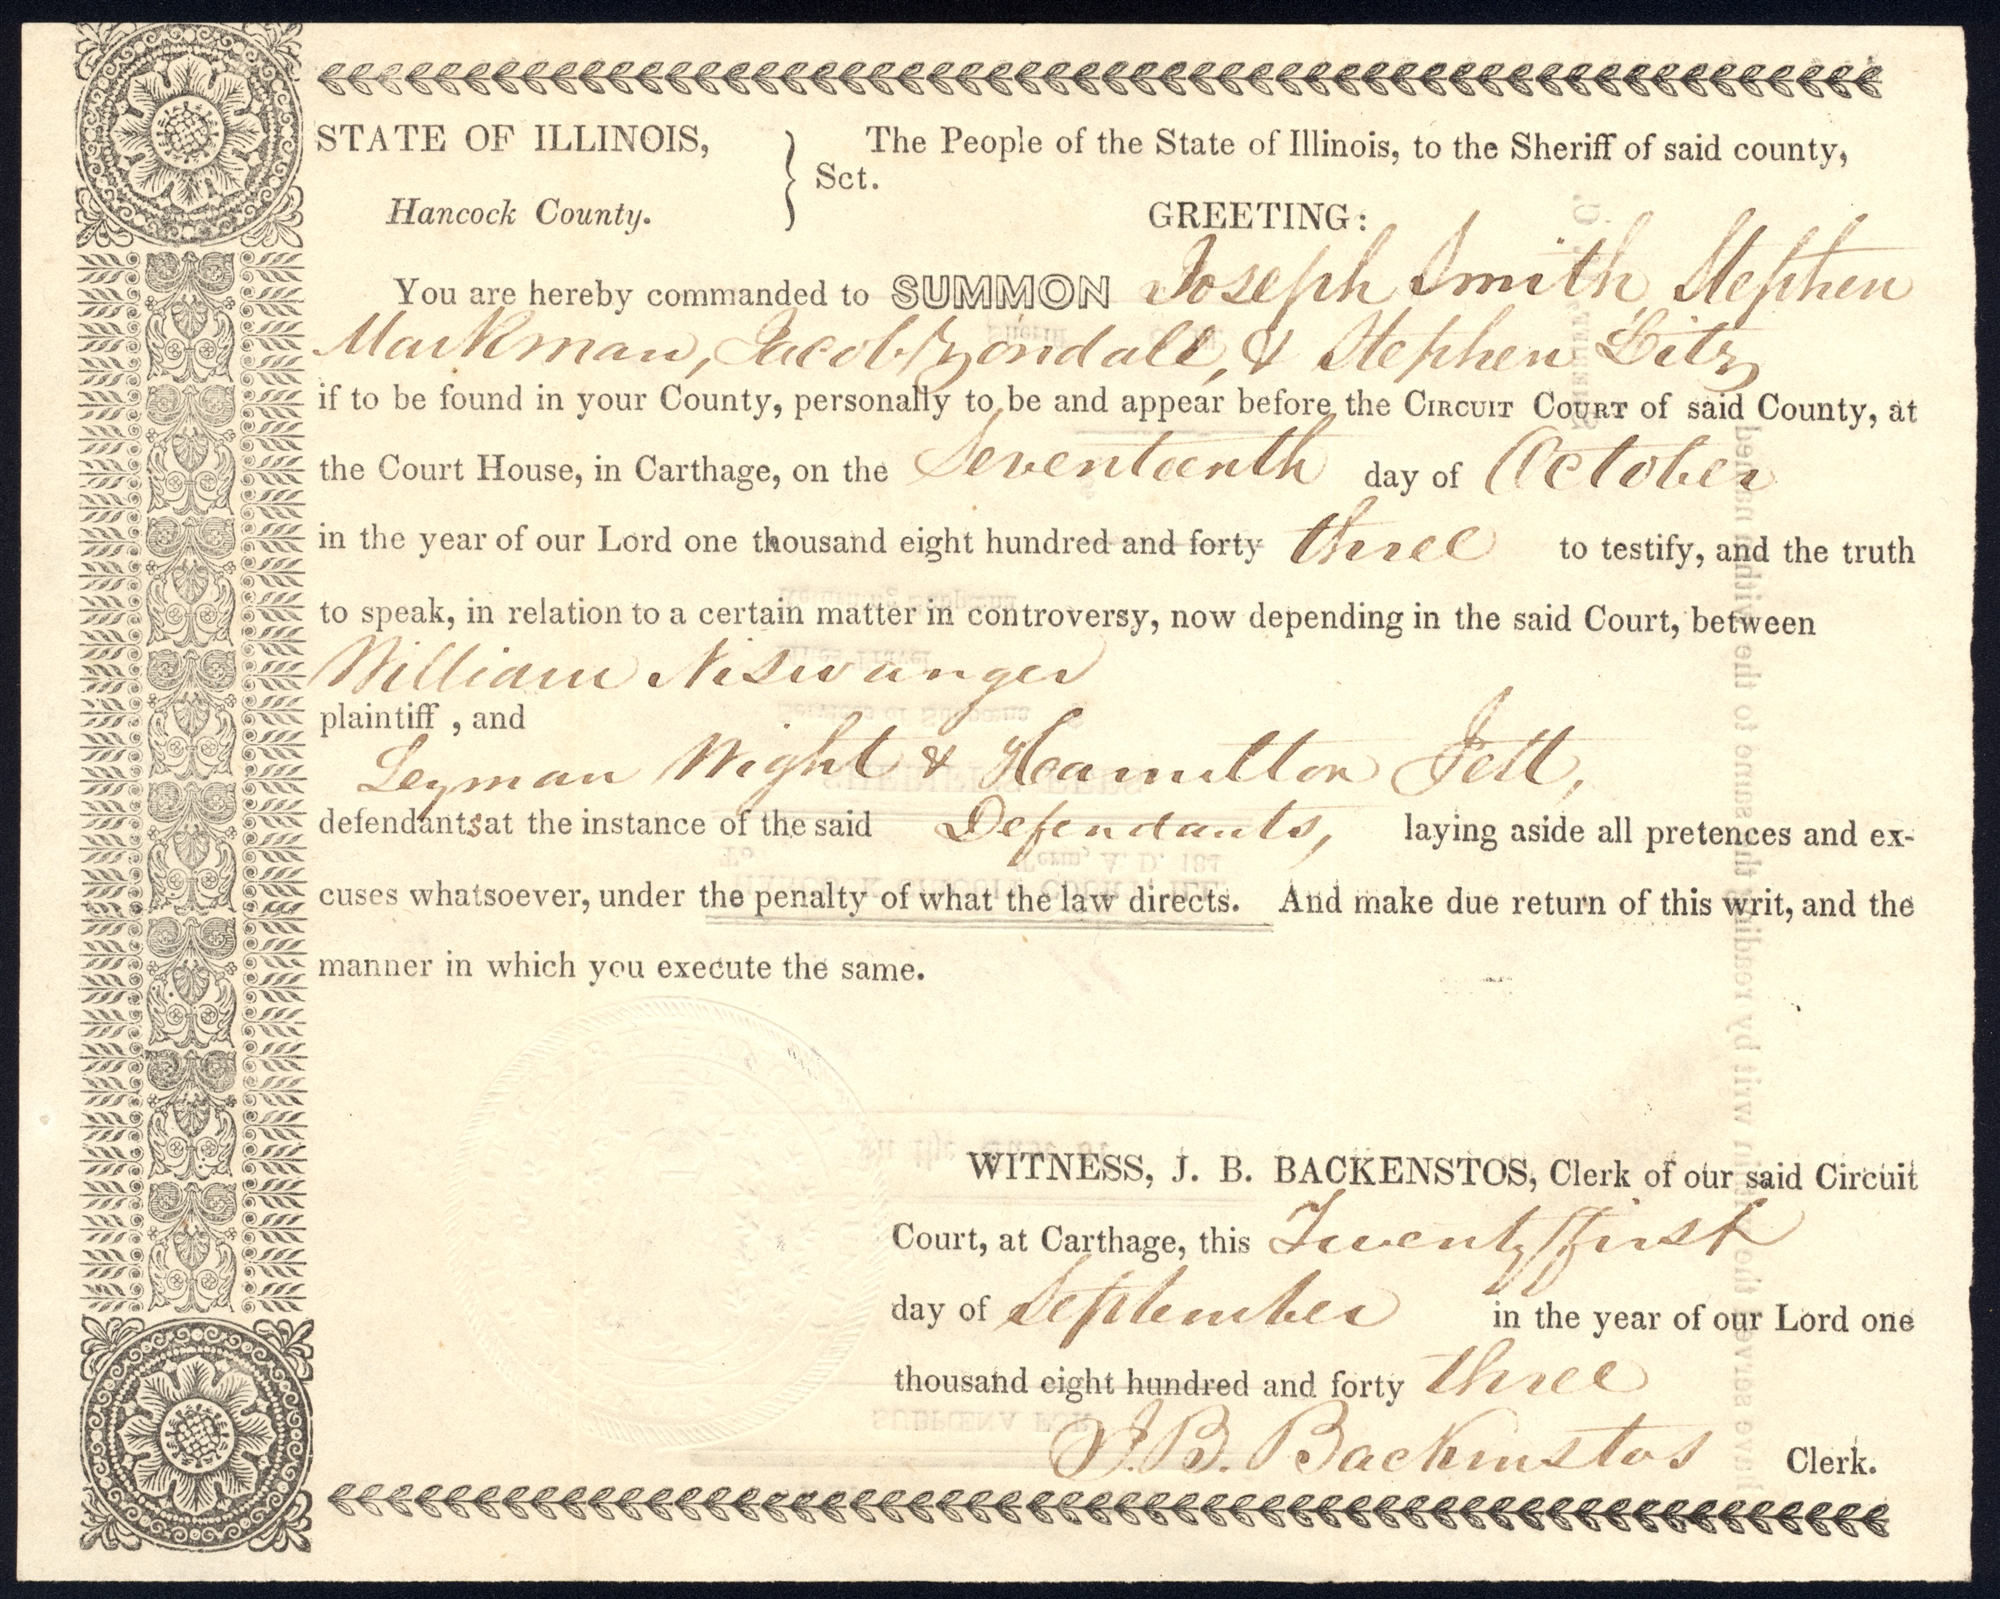 STATE OF ILLINOIS,
Hancock County.
Sct.
The People of the State of Illinois, to the Sheriff of said county,
GREETING:
You are hereby commanded to SUMMON Joseph Smith Stephen
Markman, Jacob Zondall, & Stephen Litz
if to be found in your County, personally to be and appear before the CIRCUIT COURT of said County, at
the Court House, in Carthage, on the Seventeenth day of October
in the year of our Lord one thousand eight hundred and forty three to testify, and the truth
to speak, in relation to a certain matter in controversy, now depending in the said Court, between
William Niswanger
plaintiff , and
Leyman Wight & Hamilton Jett,
defendants at the instance of the said Defendants, laying aside all pretences and ex-
cuses whatsoever, under the penalty of what the law directs. And make due return of this writ, and the
manner in which you execute the same.
WITNESS, J. B. BACKENSTOS, Clerk of our said Circuit
Court, at Carthage, this Twenty first
day of September in the year of our Lord one
thousand eight hundred and forty three
J. B. Backenstos Clerk.